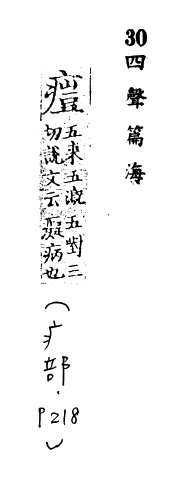 30 四聲篇海
五來五溉五對三
切說文云癡病也
(疒部.P218)